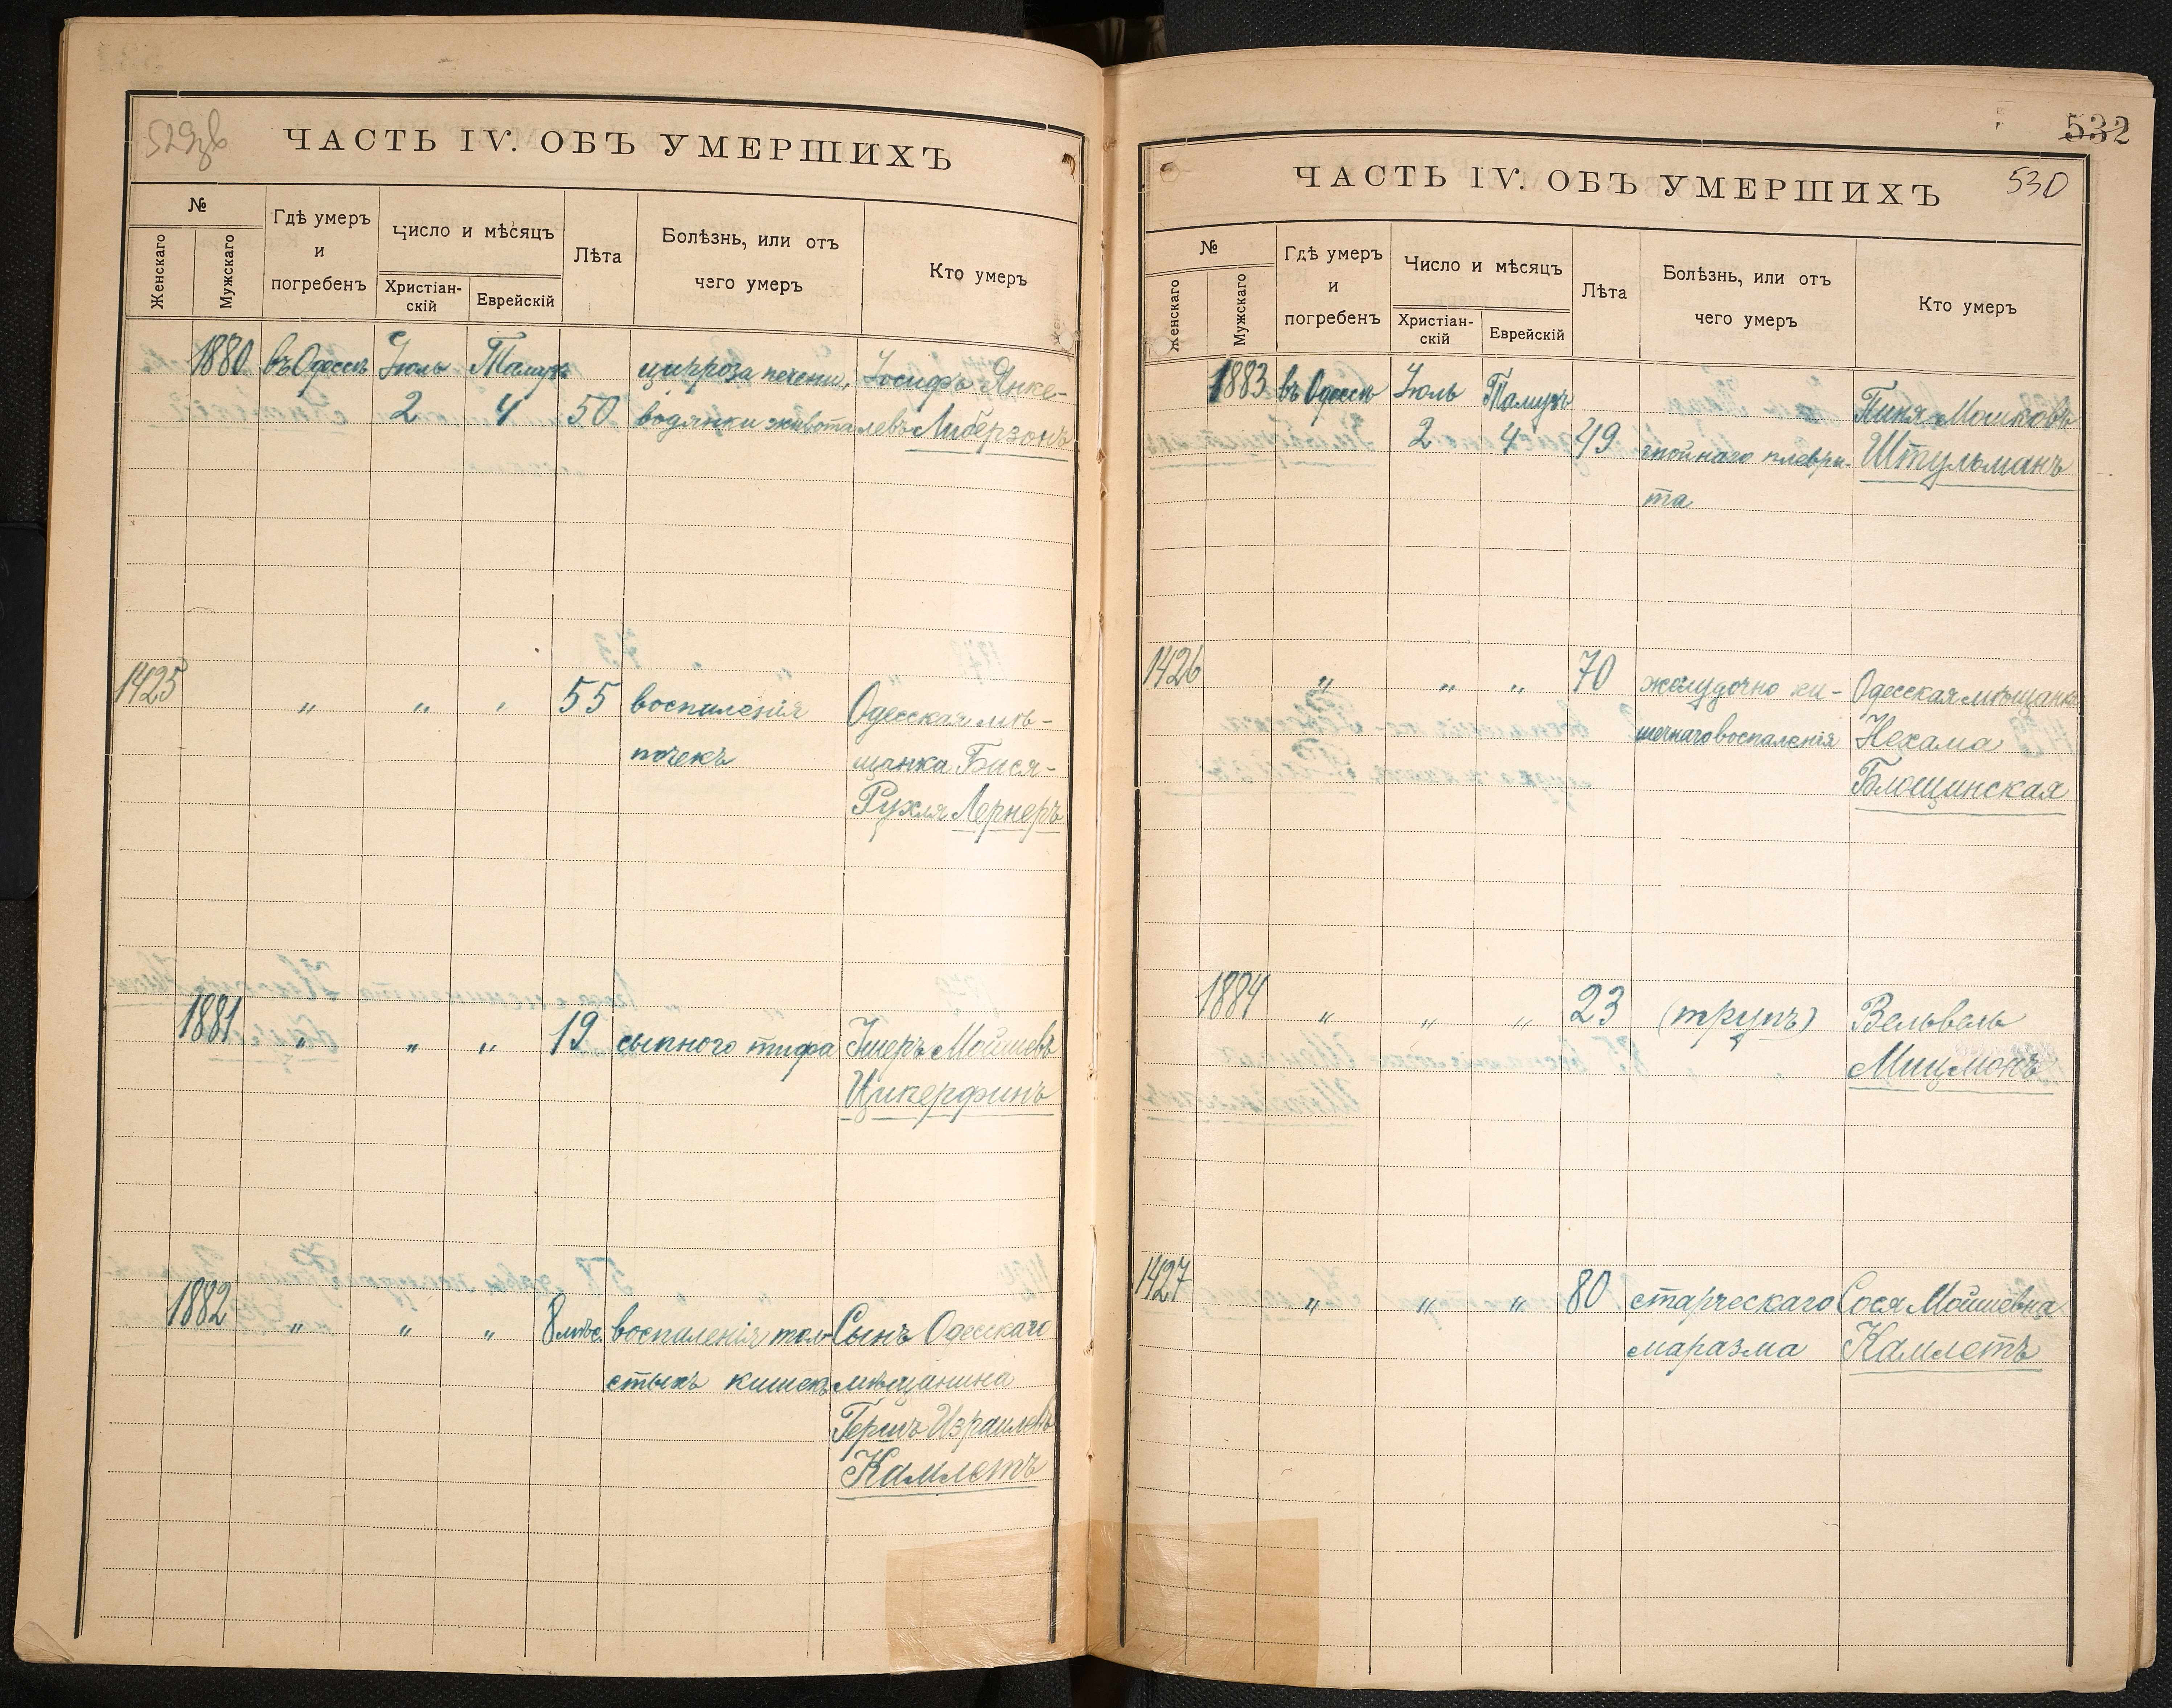 529об
ЧАСТЬ IV. ОБЪ УМЕРШИХЪ
№
Женскаго
Мужскаго
Гдѣ умеръ
и
погребенъ
Число и мѣсяцъ
Христіан-
скій
Еврейскій
Лѣта
Болѣзнь, или отъ
чего умеръ
Кто умеръ
1880 въ Одессѣ Іюль Тамузъ цирроза печени, Іосифъ Янке-
2 4 50 водянки живота левъ Либерзонъ
1425 " " " 55 воспаленія Одесская мѣ-
почекъ щанка Бася-
Рухля Лернеръ
1881 " " " 19 сыпного тифа Ушеръ Мошневъ
Цикерфинъ
1882 " " " 8 мѣс. воспаленія тол- Сынъ Одесскаго
стыхъ кишекъ мѣщанина
Гершъ Израилевъ
Камлетъ
532
530
ЧАСТЬ IV. ОБЪ УМЕРШИХЪ
№
Женскаго
Мужскаго
Гдѣ умеръ
и
погребенъ
Число и мѣсяцъ
Христіан-
скій
Еврейскій
Лѣта
Болѣзнь, или отъ
чего умеръ
Кто умеръ
1883 въ Одессѣ Іюль Тамузъ Пиня Мошковъ
2 4 49 гнойнаго плеври- Штульманъ
та
1426 " " " 70 желудочно ки- Одесская мѣщанка
шечнаго воспаленія Нехама
Блощинская
1884 " " " 23 (трупъ) Вельвель
Мицмонъ
1427 " " " 80 старческаго Сося Мошиевна
маразма Камлетъ